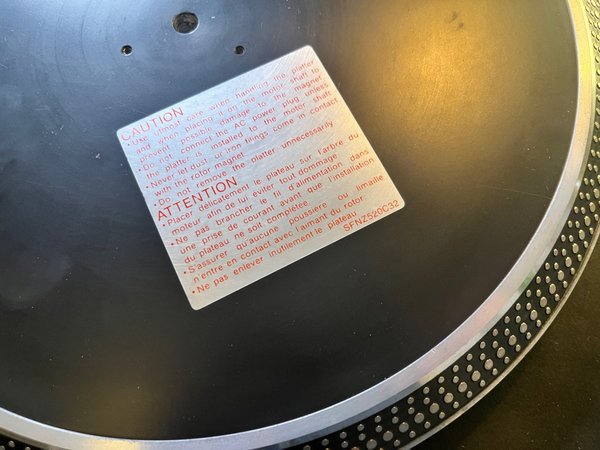 CAUTION
• Use utmost care when handling the platter
and when placing it on the motor shaft to
prevent possible damage to the magnet
• Do not connect the AC power plug unless
the platter is installed to the motor shaft
• Never let dust or iron filings come in contact
with the rotor magnet
• Do not remove the platter unnecessarily
ATTENTION
• Placer délicatement le plateau sur l'arbre du
moteur afin de lui éviter tout dommage
• Ne pas brancher le fil d'alimentation dans
une prise de courant avant que l'installation
du plateau ne soit complétée
• S'assurer qu'aucune poussière ou limaille
n'entre en contact avec l'aimant du rotor
• Ne pas enlever inutilement le plateau
SFNZ520C32